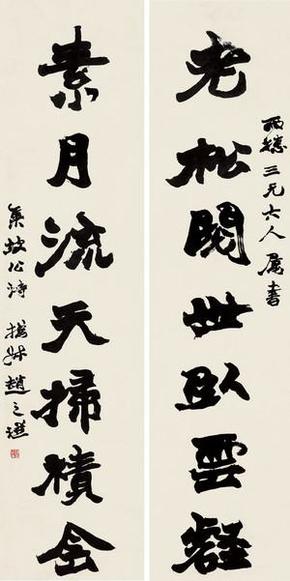 老松閱世臥雲壑
三兄大人屬書
素月流天掃積侌
集坡公詩 撝叔趙之謙